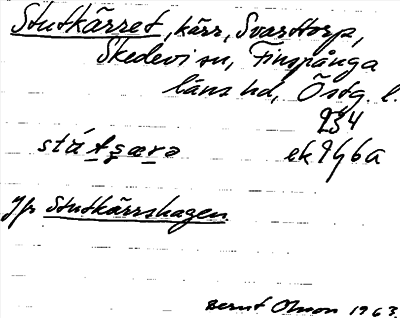 Stutkärret, kärr, Svarttorp,
Skedevi sn, Finspånga
läns hd, Östg. l.
234
ek 9h6a
Jfr Stutkärrshagen.
Bernt Olsson 1963.